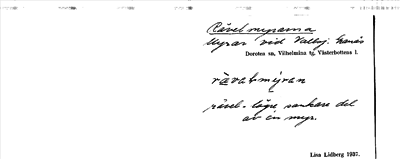 Rävelmyrarna
Myrar vid Vallsj. Granås
Dorotea sn, Vilhelmina tg, Västerbottens l.
rävəlmýran
rävel = lägre sankare del
av en myr.
Lisa Lidberg 1937.